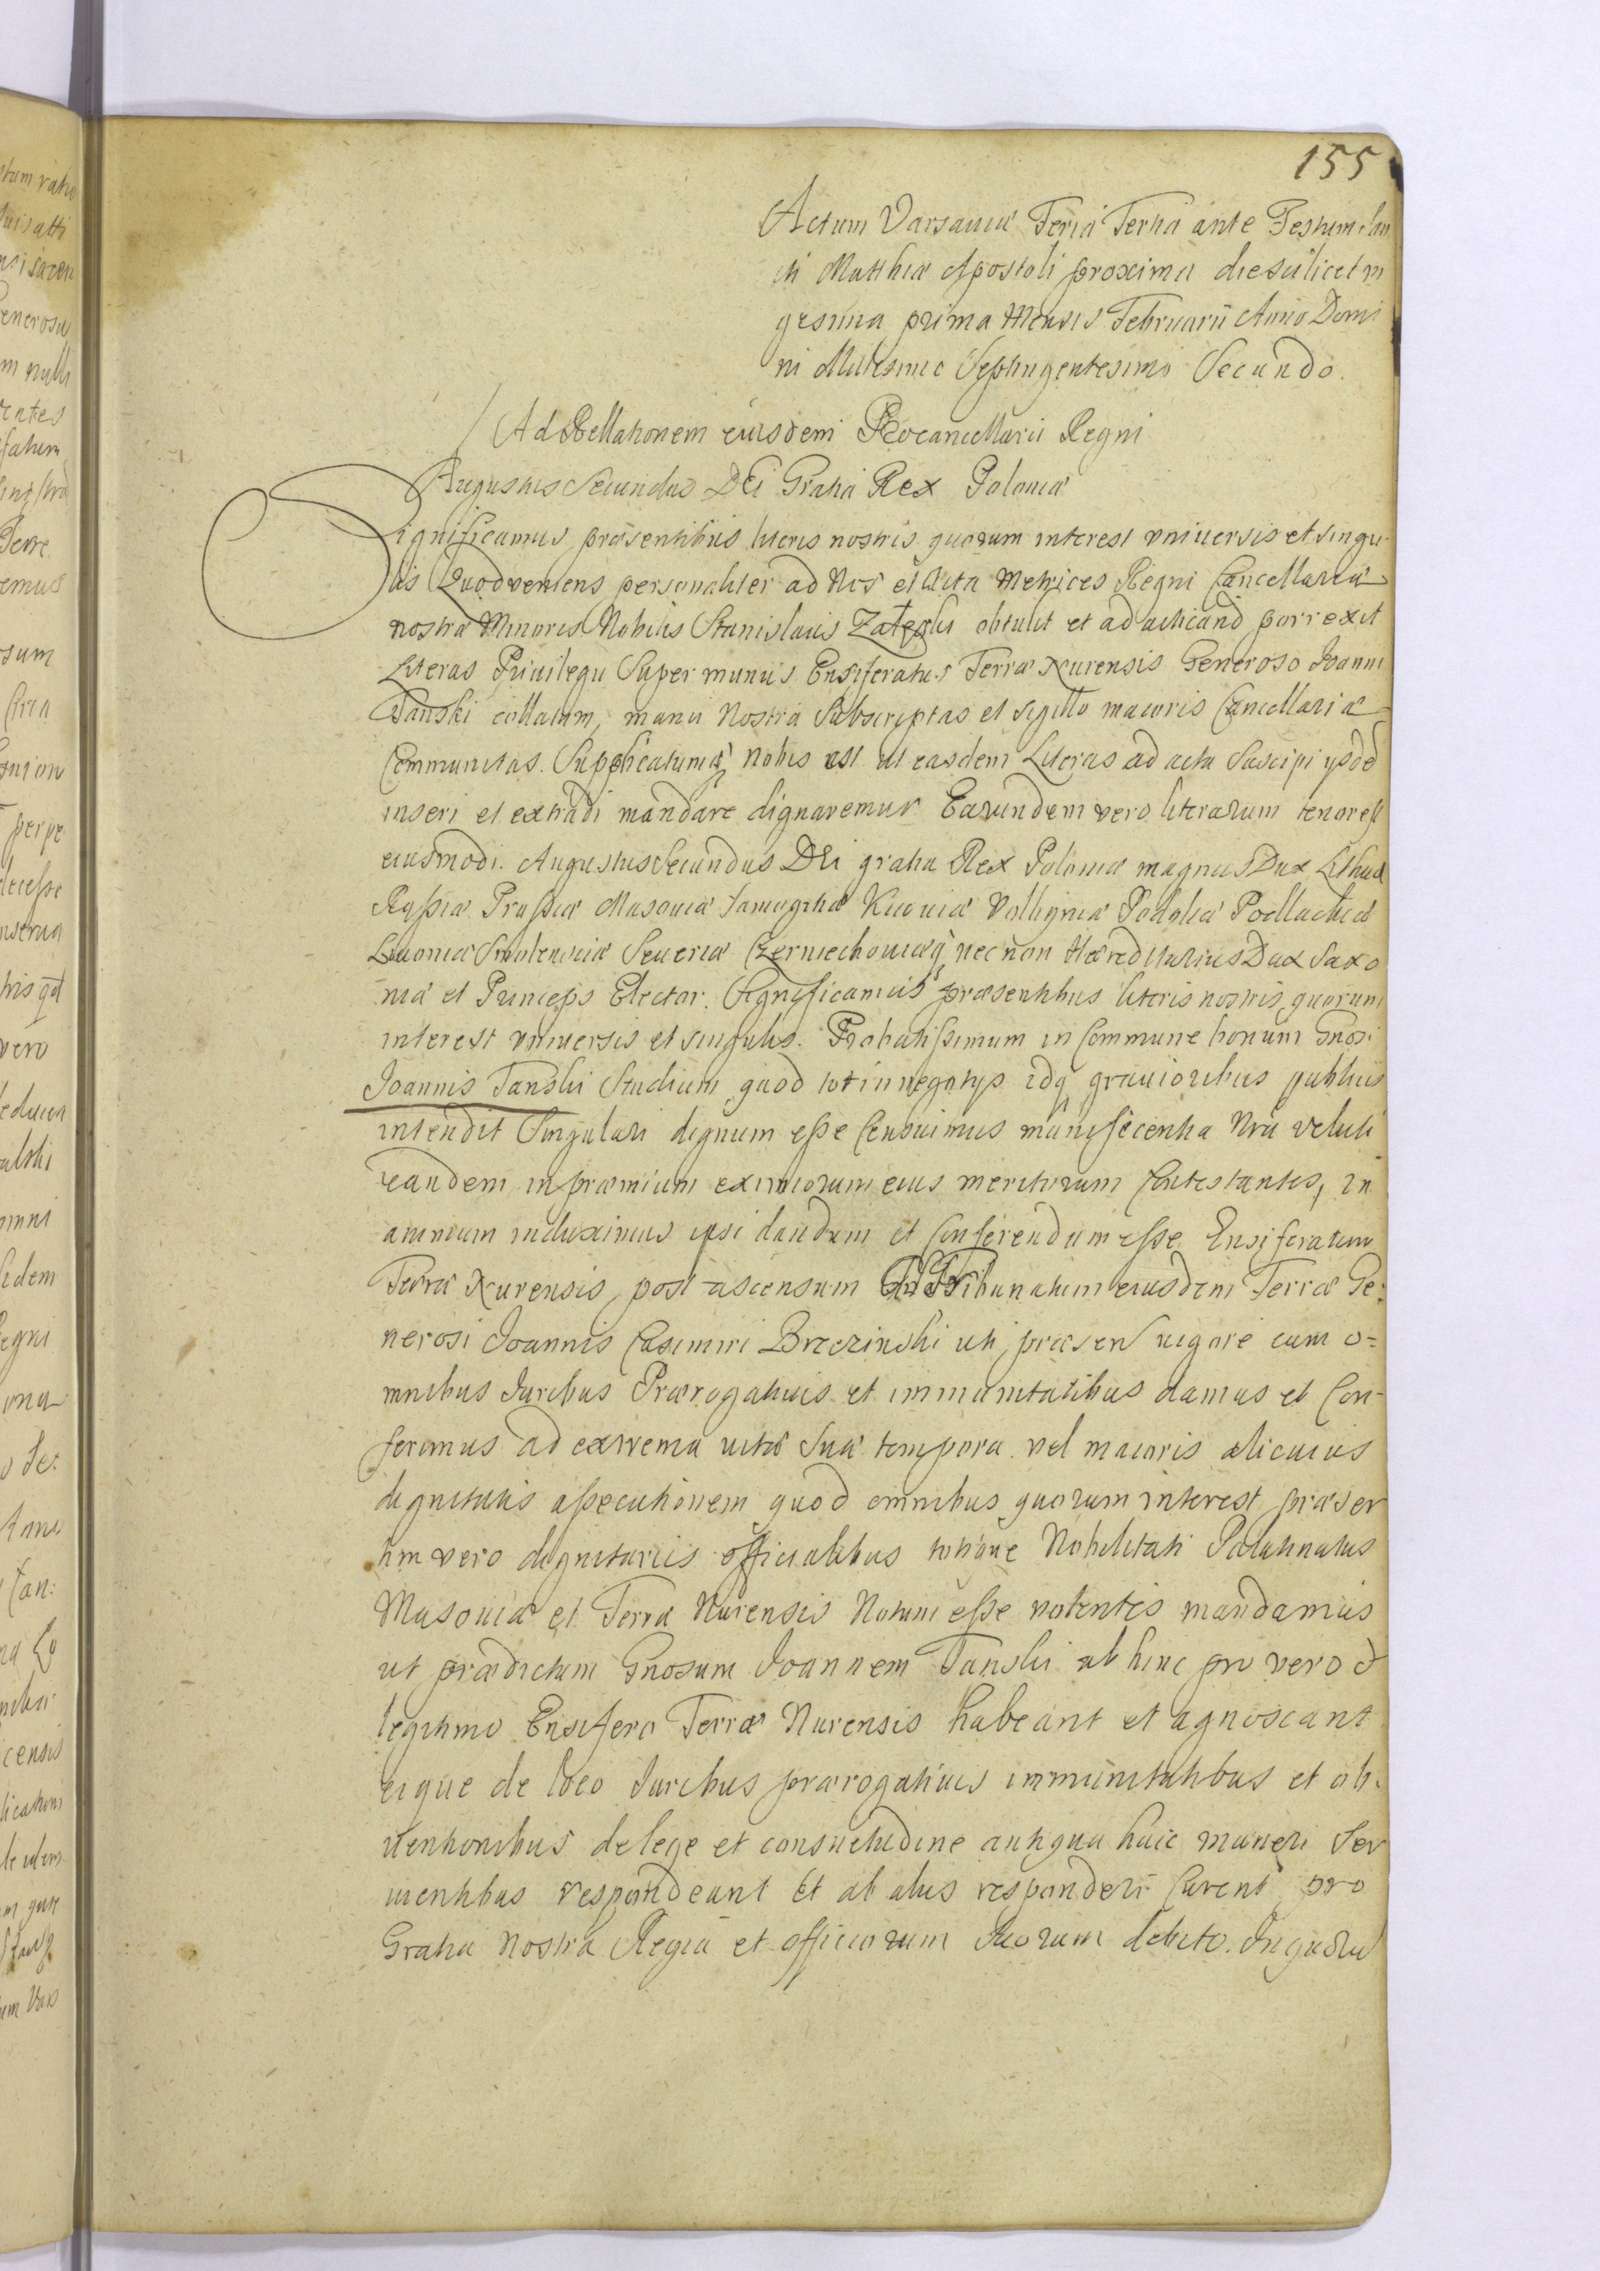 155
Actum Varsaviæ Feria Tertia ante Festum San
cti Matthiæ Apostoli proxima die scilicet vi
gesima prima Mensis Februarii Anno Domi
ni Millesimo Septingentesimo Secundo.
Ad Rellationem eiusdem Procancellarii Regni
Augustus Secundus DEi Gratia Rex Poloniæ
Significamus præsentibus literis nostris quorum interest universis et singu
lis Quod veniens personaliter ad Nos et Acta Metrices Regni Cancellariæ
nostræ Minoris Nobilis Stanislaus obtulit et ad acticand porrexit
Literas Privilegii Super munus Ensiferatus Terræ Nurensis Generoso Ioanni
Tanski collatum, manu Nostra Subscriptas et sigillo maioris Cancellariæ
Communitas. Supplicatumq nobis est ut easdem Literas ad acta Suscipi ysdē
inseri et extradi mandare dignaremur Earundem vero literarum tenor est
eiusmodi. Augustus Secundus DEi gratia Rex Poloniæ magnus Dux Lithuæ
Russiæ Prussiæ Masoviæ Samogitiæ Kiioviæ Volhyniæ Podoliæ Podlachiæ
Livoniæ Smolensciæ Severiæ Czerniechoviæq nec non Hæreditarius Dux Saxo
niæ et Princeps Elector. Significamus præsentibus literis nostris quorum
interest universis et singulis. Probatissimum in Commune bonum Gnosi
Joannis Tanski Studium quod tot in negotys idq gravioribus publicis
intendit Singulari dignum esse Censuimus munificentia Nra veluti
eandem in præmium eximiorum eius meritorum Contestantes, in
animum induximus ipsi dandum et Conferendum esse Ensiferatum
Terræ Nurensis post ascensum Ad Tribunatum eiusdem Terræ Ge:
nerosi Joannis Casimiri Brzezinski uti præsen vigore cum o=
mnibus Juribus Prærogativis et immunitatibus damus et Con-
ferimus ad extrema vitæ Suæ tempora vel maioris alicuius
dignitatis assecutionem quod omnibus quorum interest præser
tim vero dignitariis officialibus totique Nobilitati Palatinatus
Masoviæ et Terræ Nurensis Notum esse volentes mandamus
ut prædictum Gnosum Joannem Tanski ab hinc pro vero &
legitimo Ensifero Terræ Nurensis habeant et agnoscant
eique de loco Juribus prærogativis immunitatibus et ob:
ventionibus de lege et consuetudine antiqua huic muneri Ser
vientibus respondeant Et ab alius responderi Curent pro
Gratia Nostra Regia et officiorum Suorum debito. In quorū